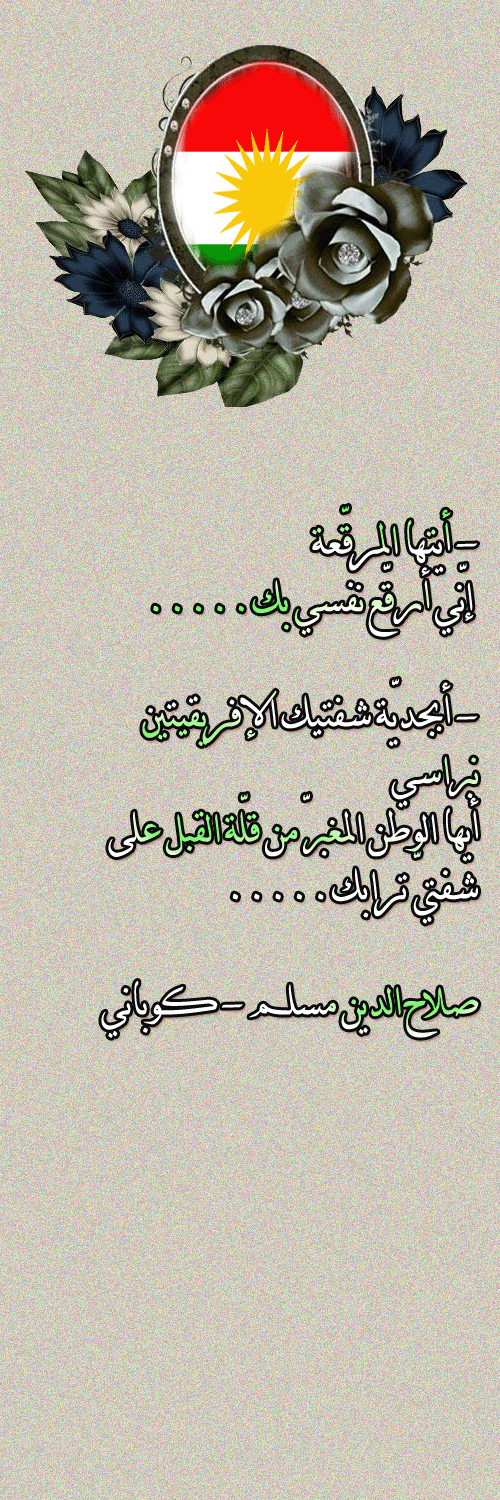 - أيتها المرقّعة
إنّي أرقّع نفسي بك.....
- أبجديّة شفتيك الإفريقيتين
نبراسي
أيها الوطن المغبرّ من قلّة القبل على
شفتي ترابك.....
صلاح الدين مسلم - كوباني